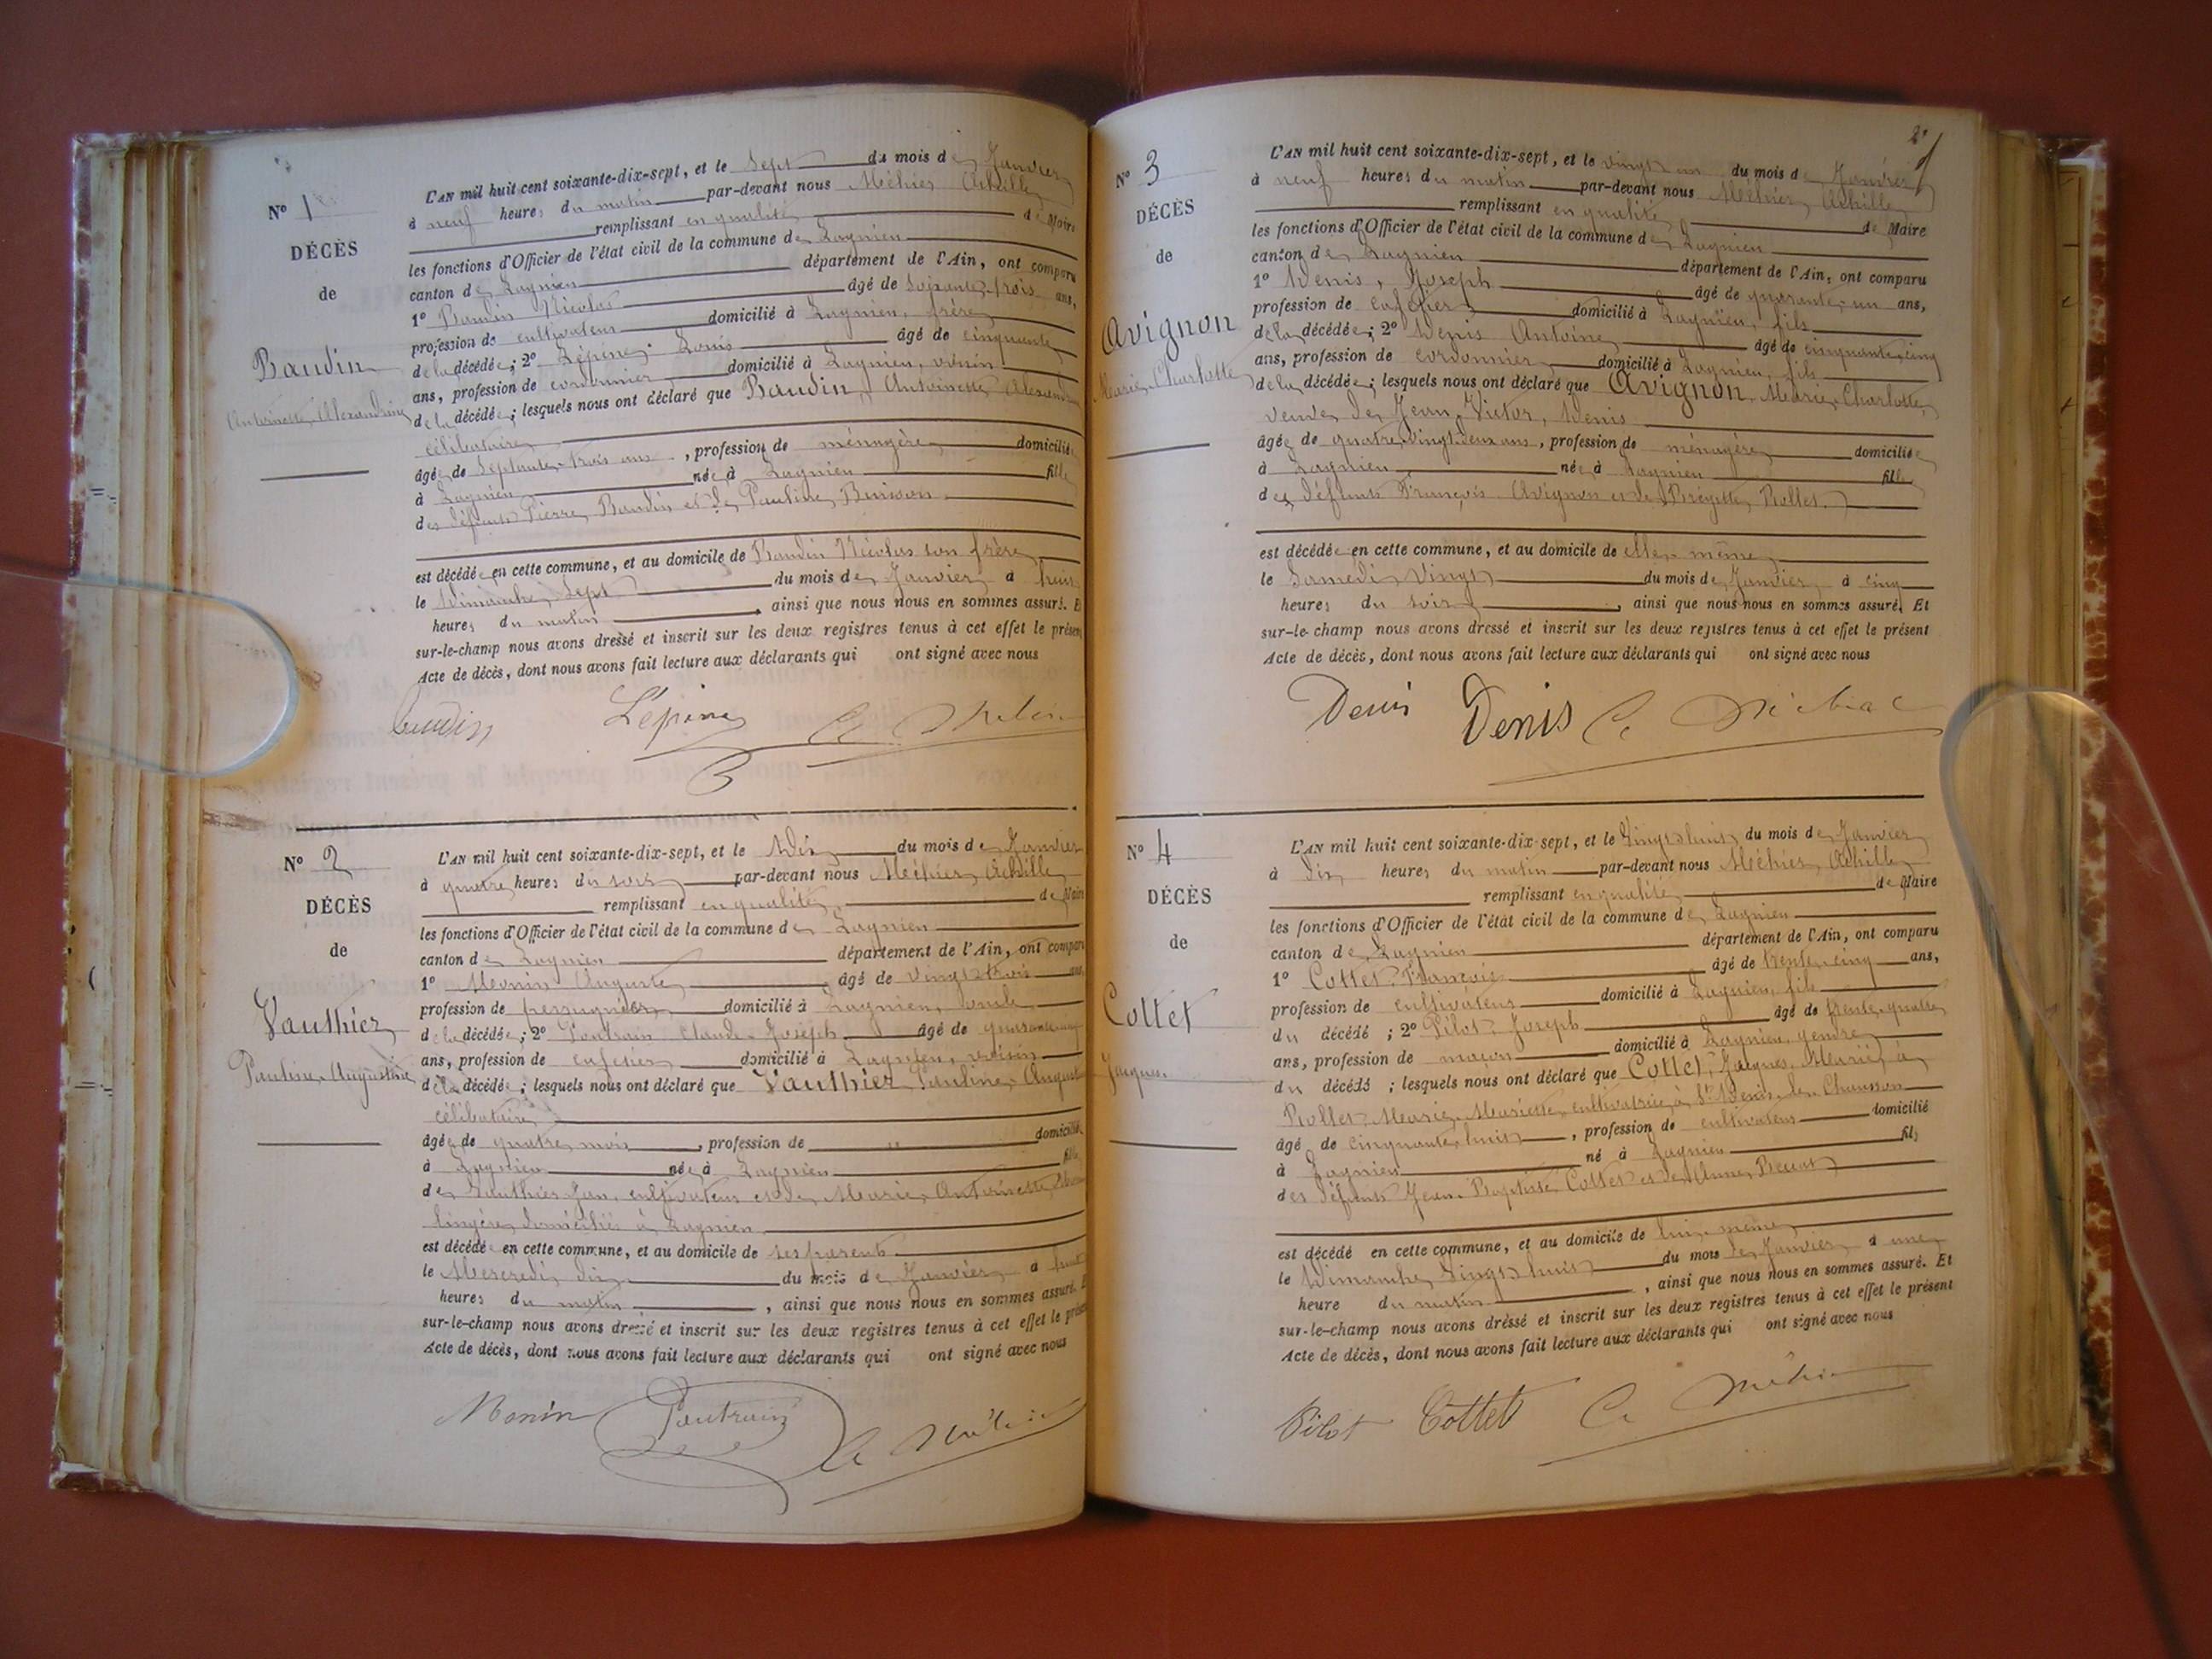 N° 1
DÉCÈS
de
Baudin
Antoinette Alexandrine
L'AN mil huit cent soixante-dix-sept, et le Sept du mois de Janvier
à neuf heures du matin par-devant nous Méhier Achille
remplissant en qualité de Maire
les fonctions d'Officier de l'état civil de la commune de Lagnieu
canton de Lagnieu département de l'Ain, ont comparu
1° Baudin Nicolas âgé de soixante-trois ans,
profession de cultivateur domicilié à Lagnieu, frère
de la décédée; 2° Lépine Louis âgé de cinquante
ans, profession de cordonnier domicilié à Lagnieu, voisin
de la décédée; lesquels nous ont déclaré que Baudin, Antoinette Alexandrine
célibataire
âgée de septante-trois ans, profession de ménagère domiciliée
à Lagnieu née à Lagnieu fille
des défunts Pierre Baudin et de Pauline
est décédée en cette commune, et au domicile de Baudin Nicolas son frère
le Dimanche Sept du mois de Janvier à huit
heures du matin, ainsi que nous nous en sommes assuré. Et
sur-le-champ nous avons dressé et inscrit sur les deux registres tenus à cet effet le présent
Acte de décès, dont nous avons fait lecture aux déclarants qui ont signé avec nous
baudin Lépine
N° 2
DÉCÈS
de
Vauthier
Pauline Augustine
L'AN mil huit cent soixante-dix-sept, et le Dix du mois de Janvier
à quatre heures du soir par-devant nous Méhier Achille
remplissant en qualité de Maire
les fonctions d'Officier de l'état civil de la commune de Lagnieu
canton de Lagnieu département de l'Ain, ont comparu
1° Monin Auguste âgé de vingt-trois ans
profession de perruquier domicilié à Lagnieu, oncle
de la décédée; 2° Pautrain Claude-Joseph âgé de quarante
ans, profession de cafetier domicilié à Lagnieu, voisin
de la décédée; lesquels nous ont déclaré que Vauthier Pauline August
célibataire
âgée de quatre mois, profession de " domiciliée
à Lagnieu née à Lagnieu fille
de Vauthier Jean, cultivateur et de Marie Antoinette
lingère domiciliés à Lagnieu
est décédée en cette commune, et au domicile de ses parents
le Mercredi dix du mois de Janvier à huit
heures du matin, ainsi que nous nous en sommes assuré. E
sur-le-champ nous avons dressé et inscrit sur les deux registres tenus à cet effet le présen
Acte de décès, dont nous avons fait lecture aux déclarants qui ont signé avec nous
Monin Pautrain
2
N° 3
DÉCÈS
de
Avignon
Marie Charlotte
L'AN mil huit cent soixante-dix-sept, et le vingt un du mois de Janvier
à neuf heures du matin par-devant nous Méhier Achille
remplissant en qualité de Maire
les fonctions d'Officier de l'état civil de la commune de Lagnieu
canton de Lagnieu département de l'Ain, ont comparu
1° Denis, Joseph âgé de quarante-un ans,
profession de cafetier domicilié à Lagnieu, fils
de la décédée; 2° Denis Antoine âgé de cinquante-cinq
ans, profession de cordonnier domicilié à Lagnieu, fils
de la décédée; lesquels nous ont déclaré que Avignon Marie Charlotte,
veuve de Jean Victor, Denis
âgée de quatre-vingt-deux ans, profession de ménagère domiciliée
à Lagnieu née à Lagnieu fille
des défunts François Avignon et de Rollet
est décédée en cette commune, et au domicile de elle-même
le Samedi Vingt du mois de Janvier à cinq
heures du soir, ainsi que nous nous en sommes assuré. Et
sur-le-champ nous avons dressé et inscrit sur les deux registres tenus à cet effet le présent
Acte de décès, dont nous avons fait lecture aux déclarants qui ont signé avec nous
Denis Denis
N° 4
DÉCÈS
de
Collet
Jacques
L'AN mil huit cent soixante-dix-sept, et le Vingt-huit du mois de Janvier
à dix heures du matin par-devant nous Méhier Achille
remplissant en qualité de Maire
les fonctions d'Officier de l'état civil de la commune de Lagnieu
canton de Lagnieu département de l'Ain, ont comparu
1° Cottet François âgé de trente-cinq ans,
profession de cultivateur domicilié à Lagnieu, fils
du décédé; 2° Pilot Joseph âgé de trente-quatre
ans, profession de maçon domicilié à Lagnieu, gendre
du décédé; lesquels nous ont déclaré que Collet, Jacques, Marié à
Rollet Marie Mariette, cultivatrice, à St Denis-le-Chausson
âgé de cinquante-huit, profession de cultivateur domicilié
à Lagnieu né à Lagnieu fils
des défunts Jean Baptiste Cottet et de Anne
est décédé en cette commune, et au domicile de lui-même
le Dimanche Vingt-huit du mois de Janvier à une
heure du matin, ainsi que nous nous en sommes assuré. Et
sur-le-champ nous avons dressé et inscrit sur les deux registres tenus à cet effet le présent
Acte de décès, dont nous avons fait lecture aux déclarants qui ont signé avec nous
Pilot Cottet